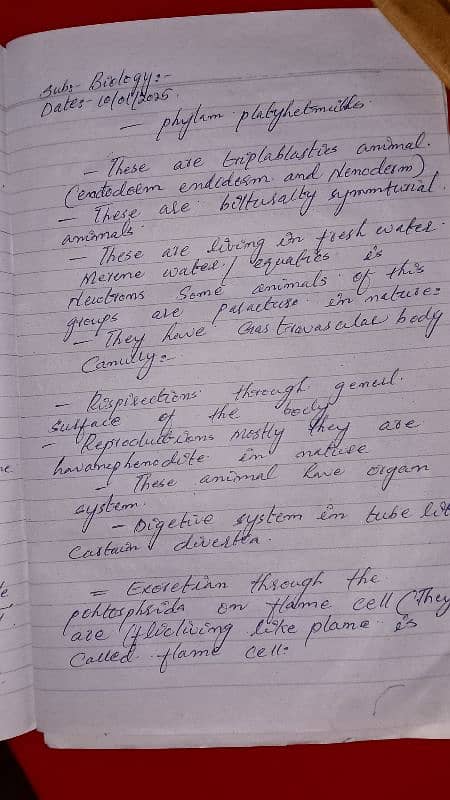 Sub:- Biology:-
Date:- 10/01/2025.
- phylam platyhetmuildes.
- These are triplablastics animal.
(enotodosm endidesm and Menoderm)
- These are bilturalty symmturial
animals.
- These are living in fresh water.
Merene water / equatics is
Some animals of this
groups are in nature:
- They have Gastrovascular body
Canuity:-
- Rispirections through geneul.
surface of the body
- Reproductions Mostly they are
havamephenodite in nature
- These animal have organ
system.
- Digetive system in tube lit
Castain divertea.
= Exoretian through the
on flame cell (They
are flicliving like plame is
Called flame cell: